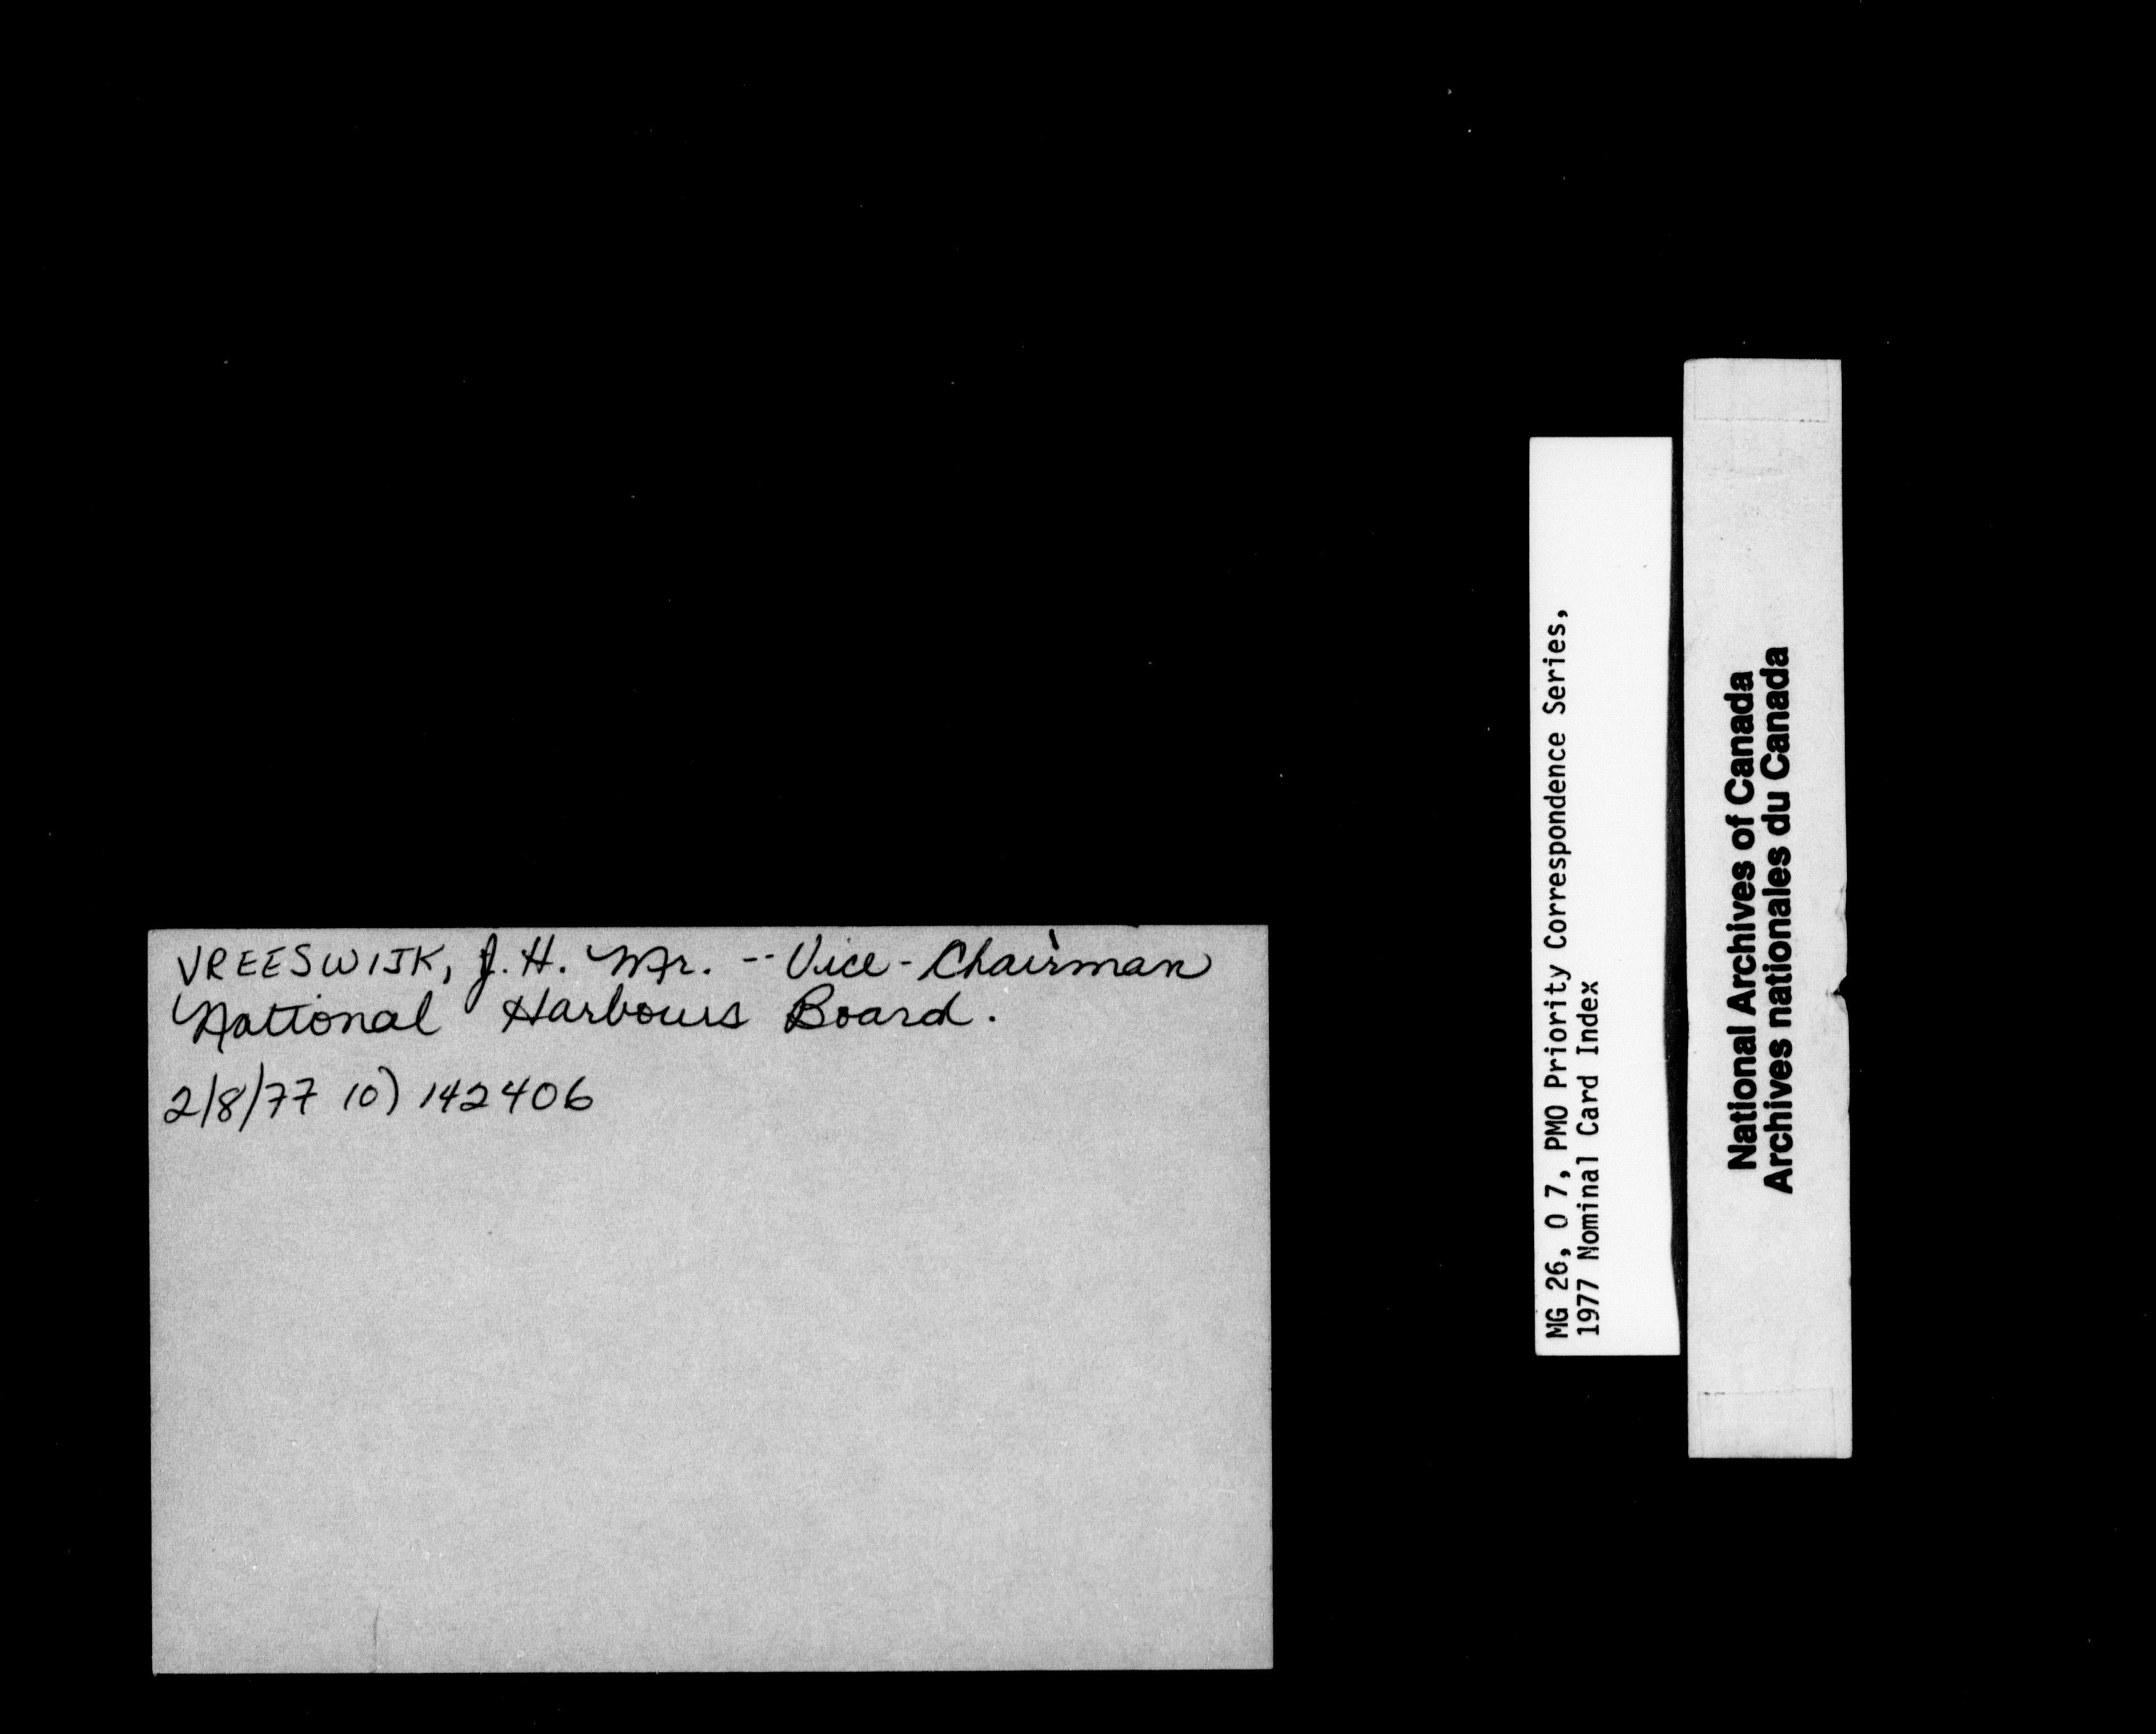 VREESWIJK, J. H. Mr. -- Vice-Chairman
National Harbours Board.
2/8/77 10) 142406
MG 26, O 7, PMO Priority Correspondence Series,
1977 Nominal Card Index
National Archives of Canada
Archives nationales du Canada